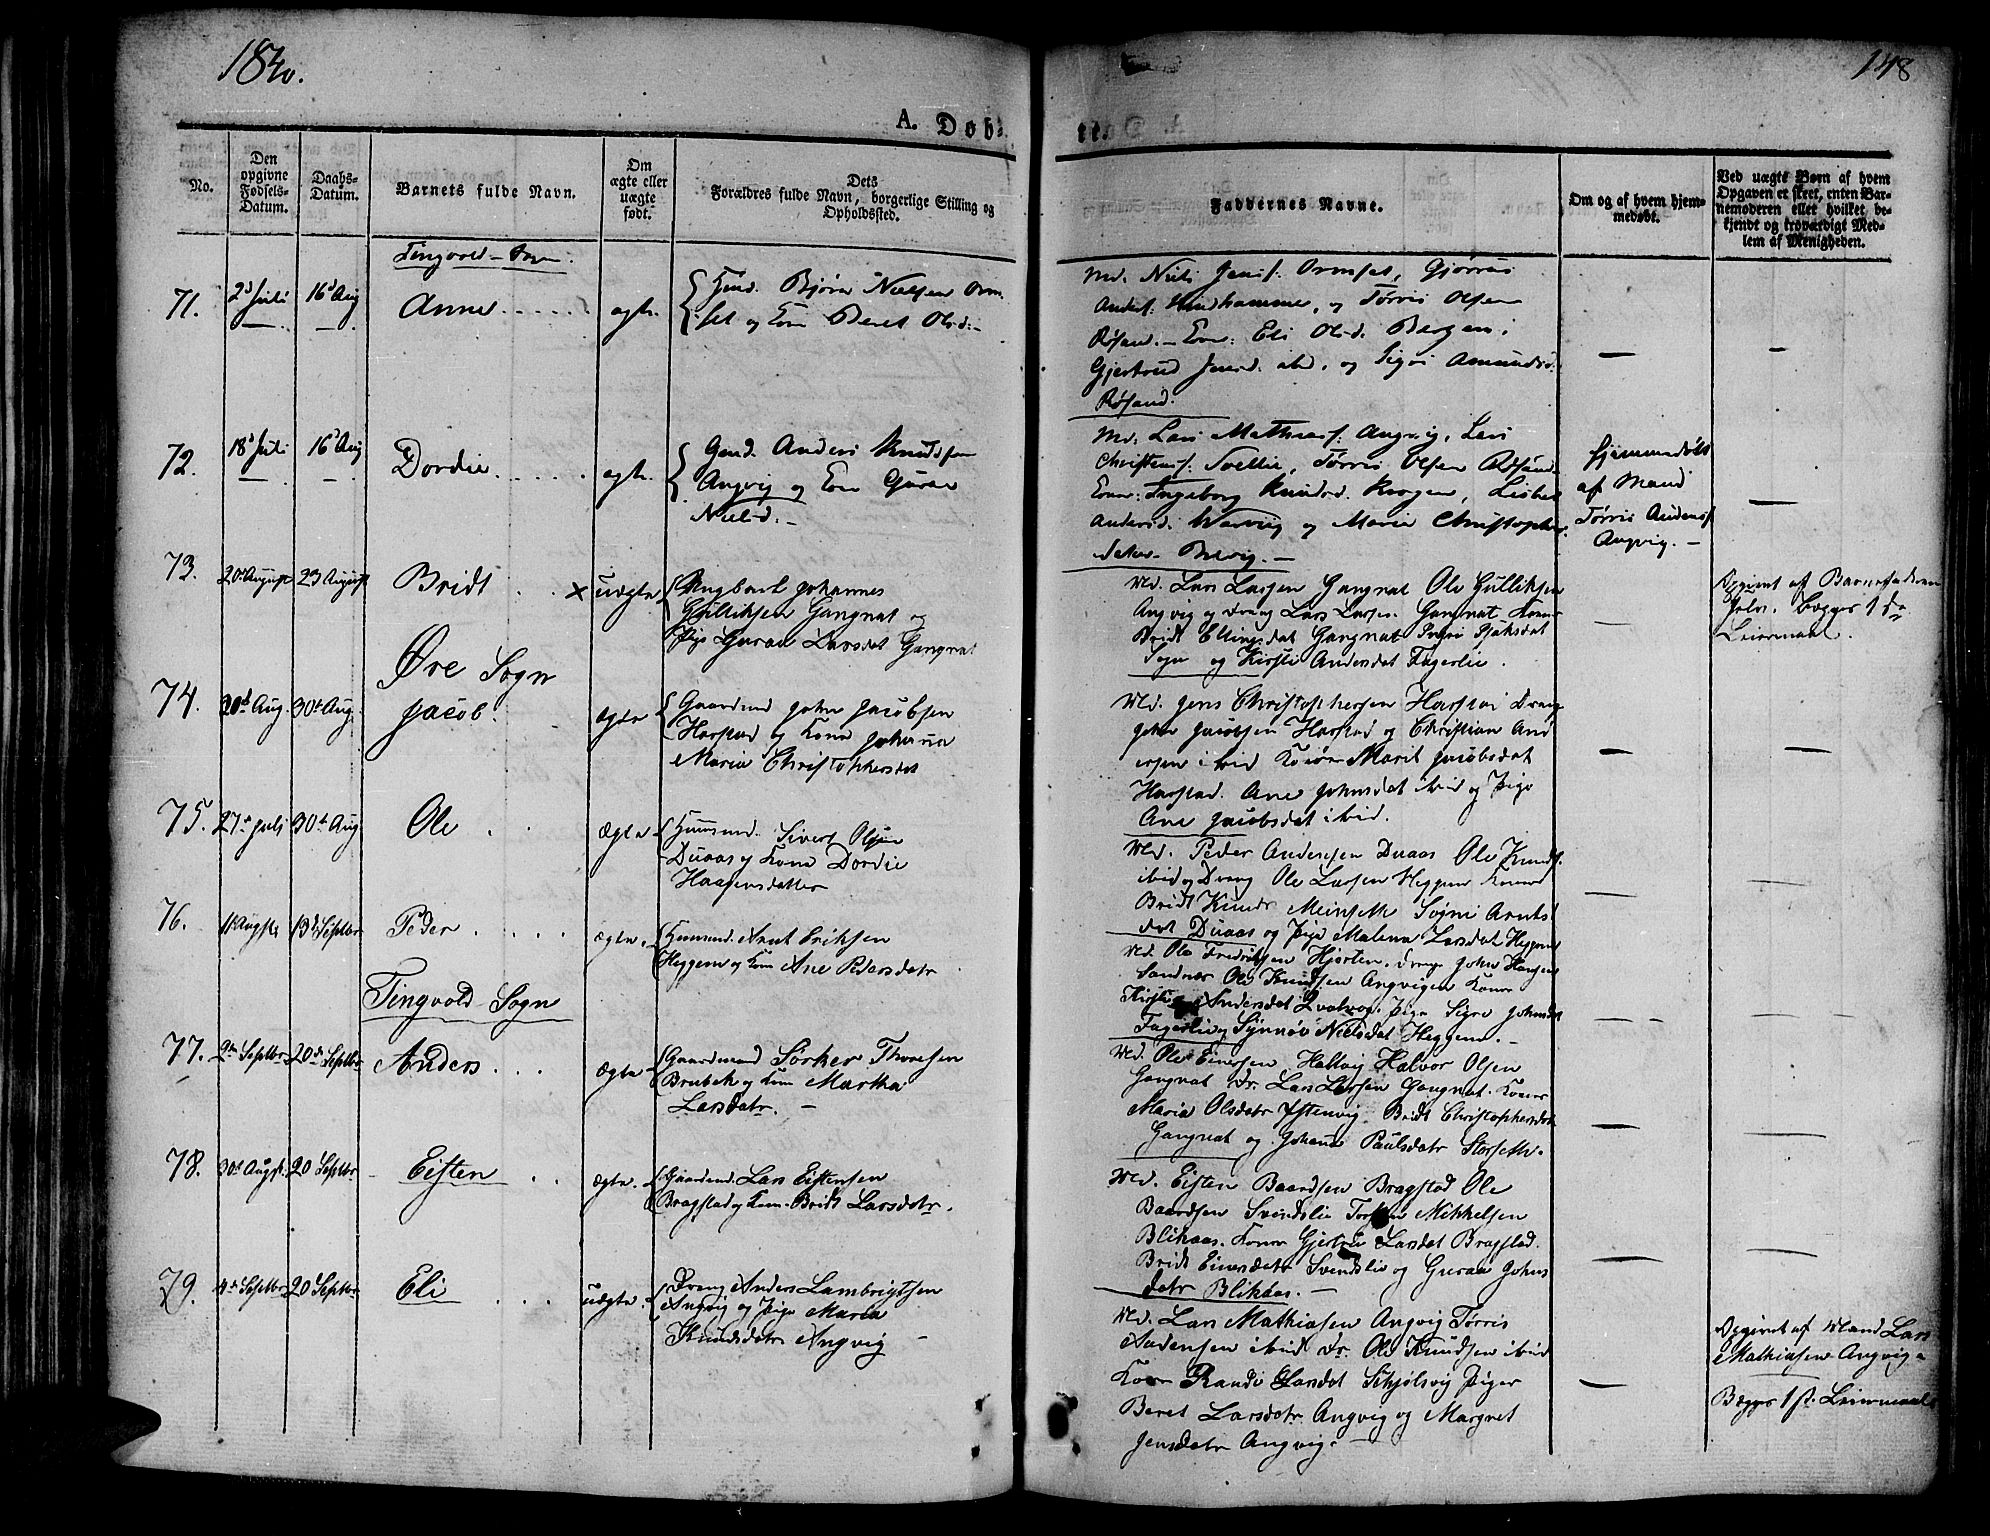 1840.
148
A. Døb-
te.
No.
Den opgivne Fødsels-Datum.
Daabs-Datum.
Barnets fulde Navn.
Om ægte eller uægte født.
Dets Forældres fulde Navn, borgerlige Stilling og Opholdssted.
Faddernes Navne.
Om og af hvem hjem-medøbt.
Ved uægte Børn af hvem Opgaven er skeet, enten Bar-nemoderen eller hvilket be-kjendt og troværdigt Med-lem af Menigheden.
Tingvold-Sogn.
71.
2d Juli
16d Aug
Anne
ægte.
Huusd. Bjørn Nielsen Orm-
set og Kone Beret Olsd:-
Md. Niels Jensf. Ormset,
Anders. Hindhammer, og Tørris Olsen
Røsand.- Koner: Eli Olsd. Bergem;
Gjertrud Jensd. , og Sigri Amundsd.
Røsand.
72.
18d Juli
16d Aug
Dordie
ægte.
Gmd. Anders Knudsen
Angvig og Kone Guroe
Nielsd.-
Md. Lars Mathiasf. Angvig, Lars
Christensf. Svellie, Tørris Olsen Røsand.
Koner: Ingeborg Knudsd. Krogen, Lisbet
Andersd. Warviig og Marie Christopher
datter Bævig.-
Hjemmedøbt
af Mand
Tørris Andersf.
Angvig.-
73.
20d August
23 August
Bridt
x uægte
Ungkarl Johannes
Gulliksen Gangnat og
Pige Guroe Larsdat Gangnat
Md. Lars Larsen Gangnat Ole Gulliksen
Angvig og Dreng Lars Larsen Gangnat Koner
Bridt Ellingsdat Gangnat Ingri
og Kirsti Andersdat Fagerlie.
Opgivet af Barnefaderen
selv. Begges 1ste
Leiermaal.
Øre Sogn
74.
20d Aug.
30d Aug.
Jacob.
ægte
Gaardmd John Jacobsen
Harstad og Kone Johanna
Maria Christophersdat
Md. Jens Christophersen Harstad Dreng
John Jacobsen Harstad og Christian And
ersen ibid Koner Marit Jacobsdat
Harstad. Ane Johnsdat ibid og Pige
Ane Jacobsdat ibid.
75.
27d Juli
30d Aug.
Ole
Ægte
Huusmd. Sivert Olsen
Duaas og Kone Dordie
Haagensdatter
Md. Peder Andersen Duaas Ole Knuds.
ibid og Dreng Ole Larsen Heggem Koner
Bridt Knuds Meisseth Sigri Arnts
dat Duaas og Pige Malena Larsdat Heggem
76.
11d Augst.
13d Septbr
Peder
ægte.
Huusmd. Arnt Eriksen
Heggem og Kone Ane Pedersdatr
Md. Ole Fredriksen Hjorten. Dreng John Hansen
Sandnæs Ole Knudsen Angvigen Koner
Kirsti Andersdat . Pige Sigri Johnsdat
Fagerlie og Synnøv Nielsdat Heggem.-
Tingvold-Sogn
77.
2den Septbr
20de Septbr
Anders
ægte
Gaardmand Sørken Thoresen
Brubek og Kone Martha
Larsdatr.-
Md. Ole Einersen Halvor Olsen
Gangnat Dr. Lars Larsen Gangnat. Koner
Maria Olsdatr Bridt Christophersdat
Gangnat og Johanna Paulsdatr Storseth.
78.
30d Augst.
20 Septbr
Eisten
ægte.
Gaardmd. Lars Eistensen
Bragstad og Kone Bridt Larsdatr.
Md. Eisten Baardsen Bragstad Ole
Baardsen Svendslie Torsten Mikkelsen
Blikaas. Koner Gjertru Larsdat Bragstad.
Bridt Einersdatr Svendslie og Guroe Johns
datr Blikaas.-
79.
4de Septbr
20 Septbr
Eli
uægte.
Dreng Anders Lambrigtsen
Angvig og Pige Maria
Knudsdatr Angvig
Md. Lars Mathiasen Angvig Tørris
Andersen ibid Dr. Ole Knudsen ibid
Koner Randi Larsdat Skjølsvig Piger
Beret Larsdatr Angvig og Margret
Jensdatr Angvig.-
Opgivet af Mand Lars
Mathiasen Angvig.
Begges 1st. Leiermaal